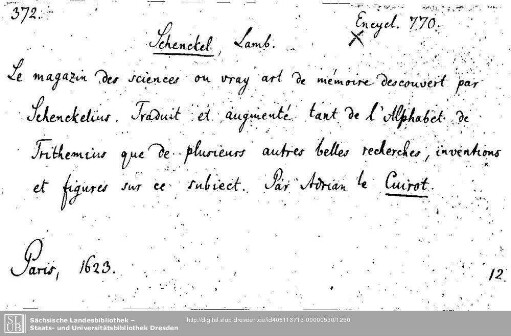 372.
Encycl. 770.
Schenckel, Lamb.
Le magazin des sciences ou vray art de mémoire descouvert par
Schenckelius. Traduit et augmenté tant de l'Alphabet de
Trithemius que de plusieurs autres belles recherches, inventions
et figures sur ce subiect. Par Adrian le Cuirot.
Paris, 1623.
12
Sächsische Landesbibliothek –
Staats- und Universitätsbibliothek Dresden